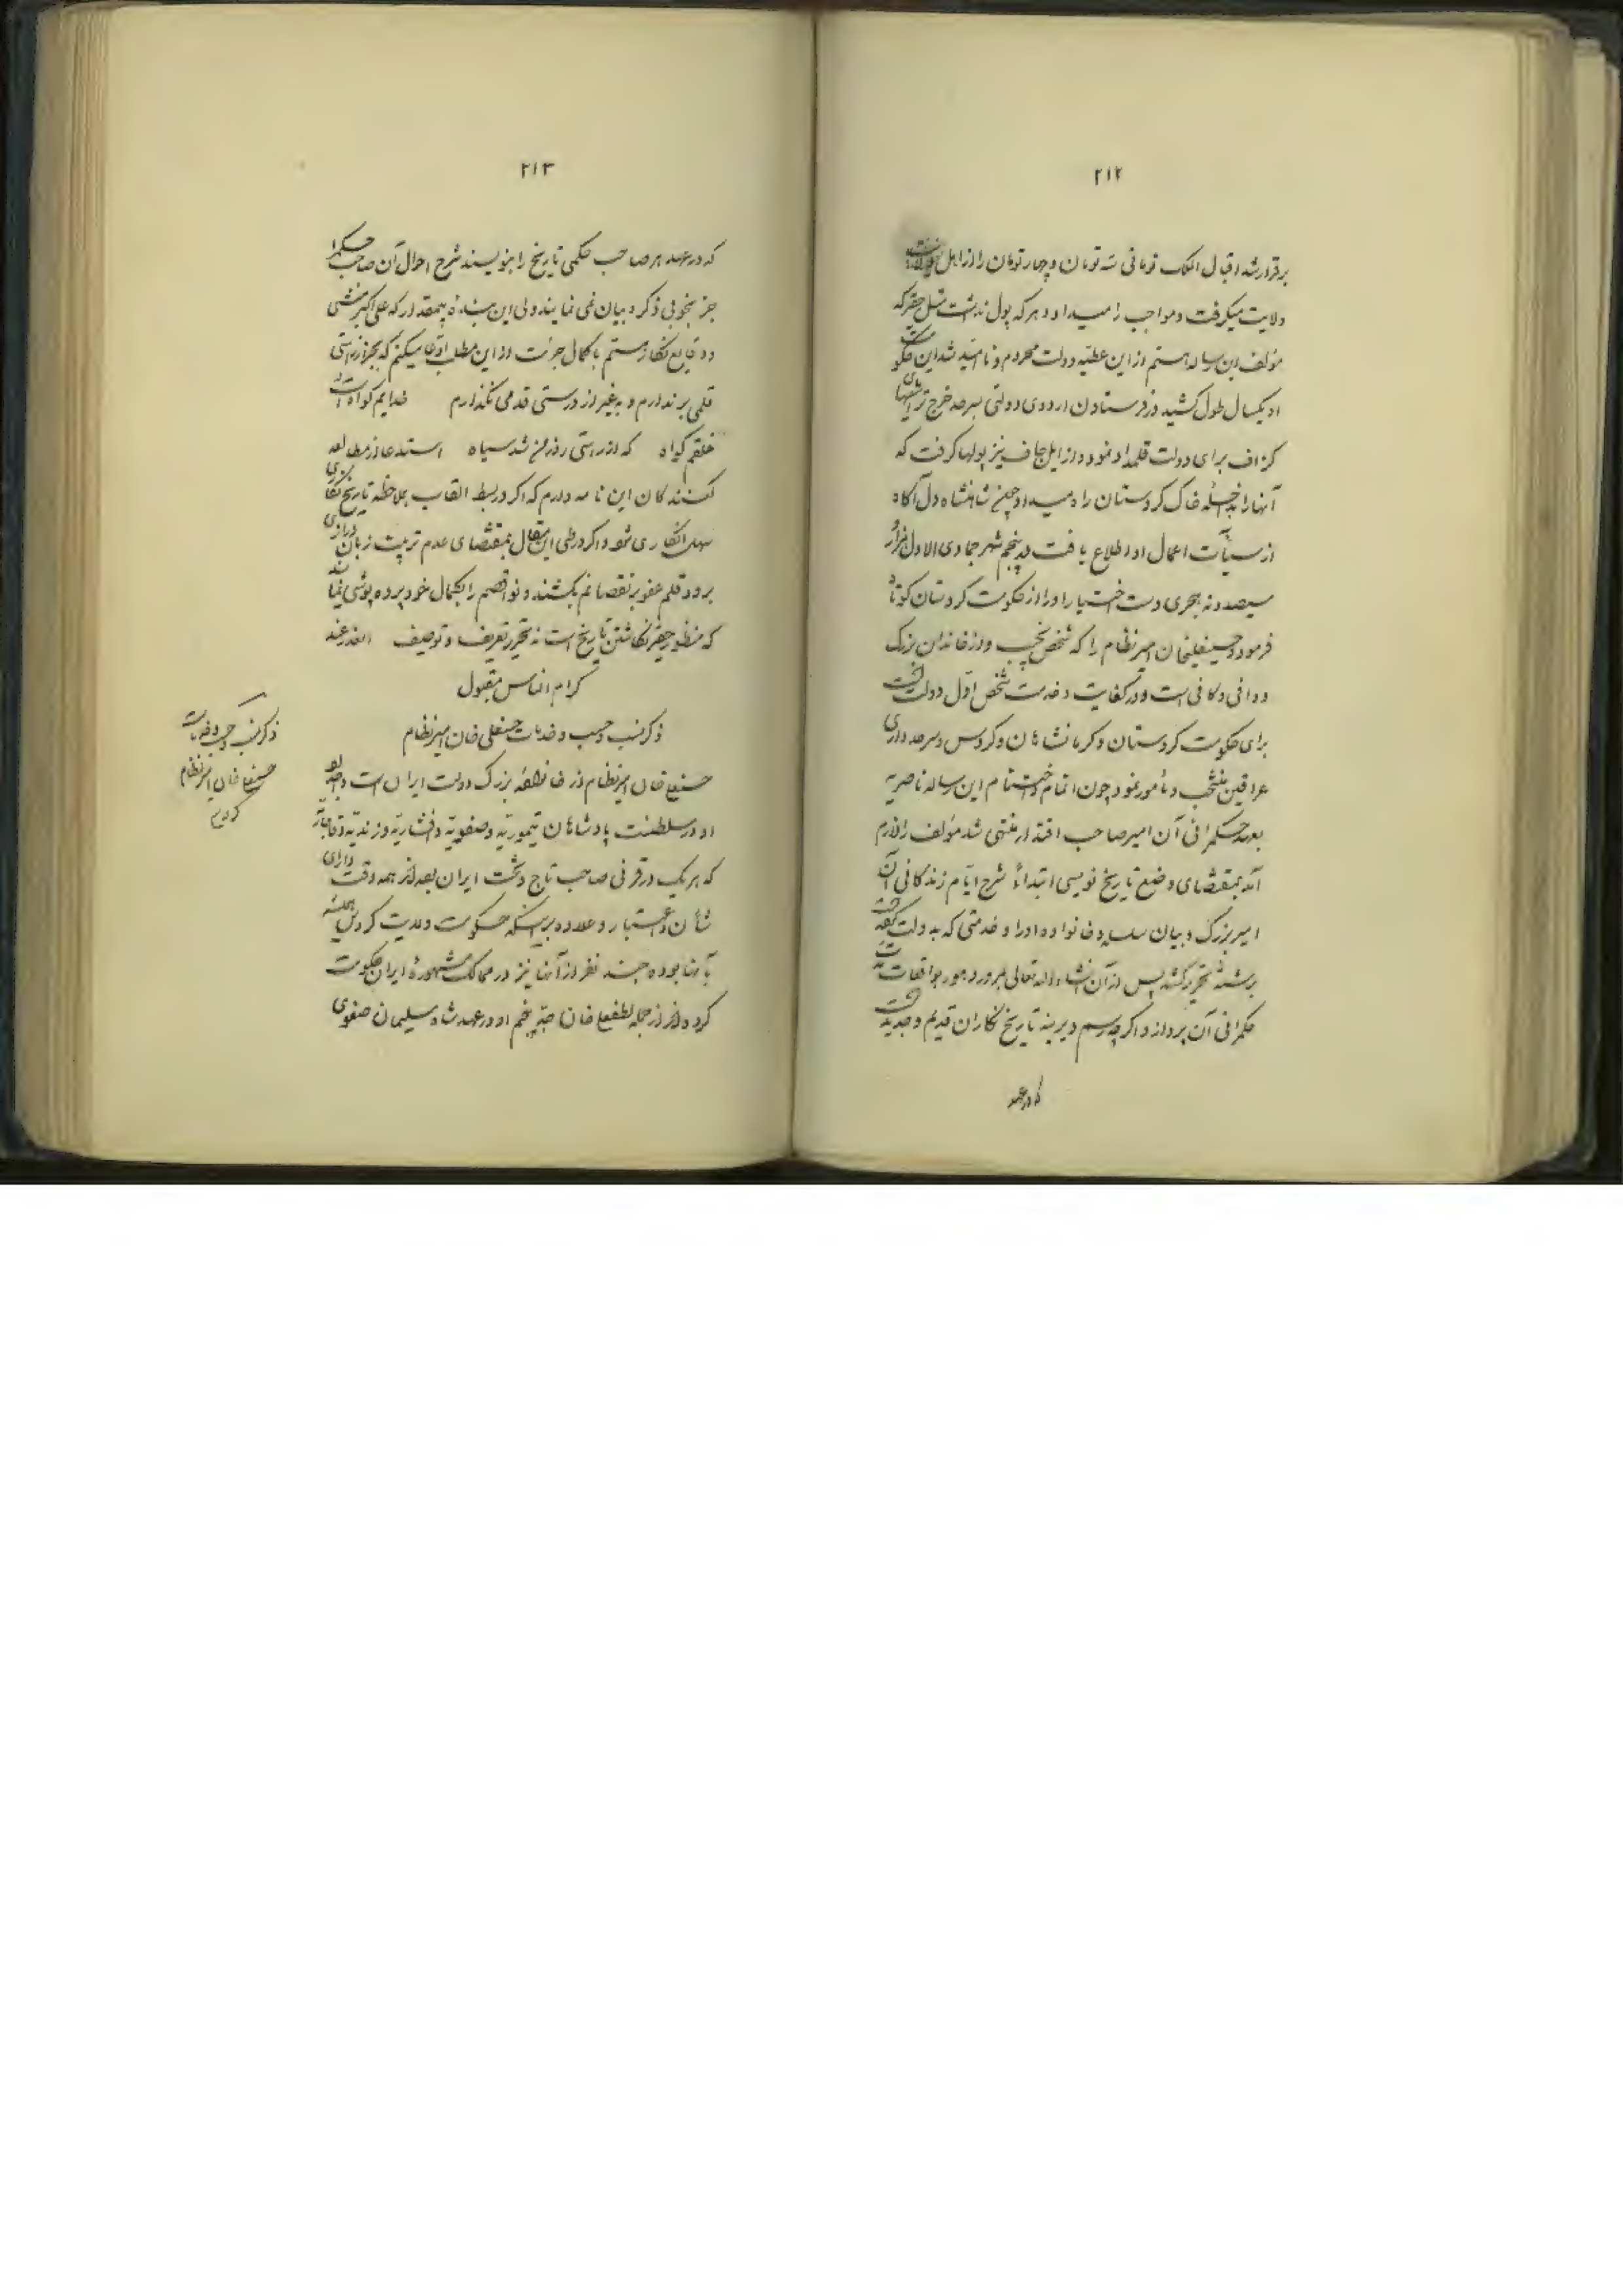 ۲۱۲
برقرار شد اقبال الملک تومانی سه تومان و چهار تومان را از اهل
ولایت میگرفت و مواجب را میداد و هر که پول نداشت مثل حقیر که
مؤلف این رساله هستم از این عطیه دولت محروم و نا امید شد این حکومت
او یکسال طول کشید در فرستادن اردوی دولتی بسرحد خرج تراشیهای
گزاف برای دولت قلمداد نمود و از ایل جاف نیز پولها گرفت که
آنها را بداخله خاک کردستان راه میداد چون شاهنشاه دل آگاه
از سیآت اعمال او اطلاع یافت در پنجم شهر جمادی الاول هزار و
سیصد و نه هجری دست اختیار او را از حکومت کردستان کوتاه
فرمود و حسینعلیخان امیر نظام را که شخص نجیب و از خاندان بزرگ
و وافی و کافی است و در کفایت و خدمت شخص اول دولت است
برای حکومت کردستان و کرمانشاهان و گروس و سرحد داری
عراقین منتخب و مأمور نمود چون اتمام و اختتام این رساله ناصریه
بعهد حکمرانی آن امیر صاحب اقتدار منتهی شد مؤلف را لازم
آمد بمقتضای وضع تاریخ نویسی ابتداءً شرح ایام زندگانی آن
امیر بزرگ و بیان سلسله و خانواده او را و خدمتی که به دولت کرده است
برشته تحریر کشد پس از آن انشاء الله تعالی بمرور دهور بواقعات مدت
حکمرانی آن پردازد اگر چه رسم دیرینه تاریخ نگاران قدیم و جدید است
که در عهد
۲۱۳
که در عهد هر صاحب حکمی تاریخ را بنویسند شرح احوال آن صاحب حکم را
جز بخوبی ذکر و بیان نمی نمایند ولی این بنده بیمقدار که علی اکبر منشی
و وقایع نگار هستم با کمال جرئت از این مطلب ادعا میکنم که بجز از راستی
قلمی بر ندارم و به غیر از درستی قدمی نگذارم خدایم گواه است
خلقم گواه که از راستی روز من شد سیاه استدعا از مطالعه
کنندگان این نامه دارم که اگر در بسط القاب بملاحظه تاریخ نگاری
سهل انگاری شود و اگر در طی این مقال بمقتضای عدم تربیت زبان درازی
برود قلم عفو بر نقصانم بکشند و نواقصم را بکمال خود پرده پوشی نمایند
که منظور حقیر نگاشتن تاریخ است نه تحریر تعریف و توصیف العذر عند
کرام الناس مقبول
ذکر نسب و حسب و خدمات حسنعلی خان امیر نظام
حسنعلی خان امیر نظام از خانواده بزرگ دولت ایران است و اجداد
او در سلطنت پادشاهان تیموریه و صفویه و افشاریه و زندیه و قاجاریه
که هر یک در قرنی صاحب تاج و تخت ایران بوده اند همه وقت دارای
شأن و اعتبار و علاوه بر اینکه حکومت ولایت گروس همیشه
با آنها بوده چند نفر از آنها نیز در ممالک مشهوره ایران حکومت
کرده اند از جمله لطفعلی خان جد پنجم او در عهد شاه سلیمان صفوی
ذکر نسب و حسب و خدمات
حسنعلی خان امیر نظام
گروس